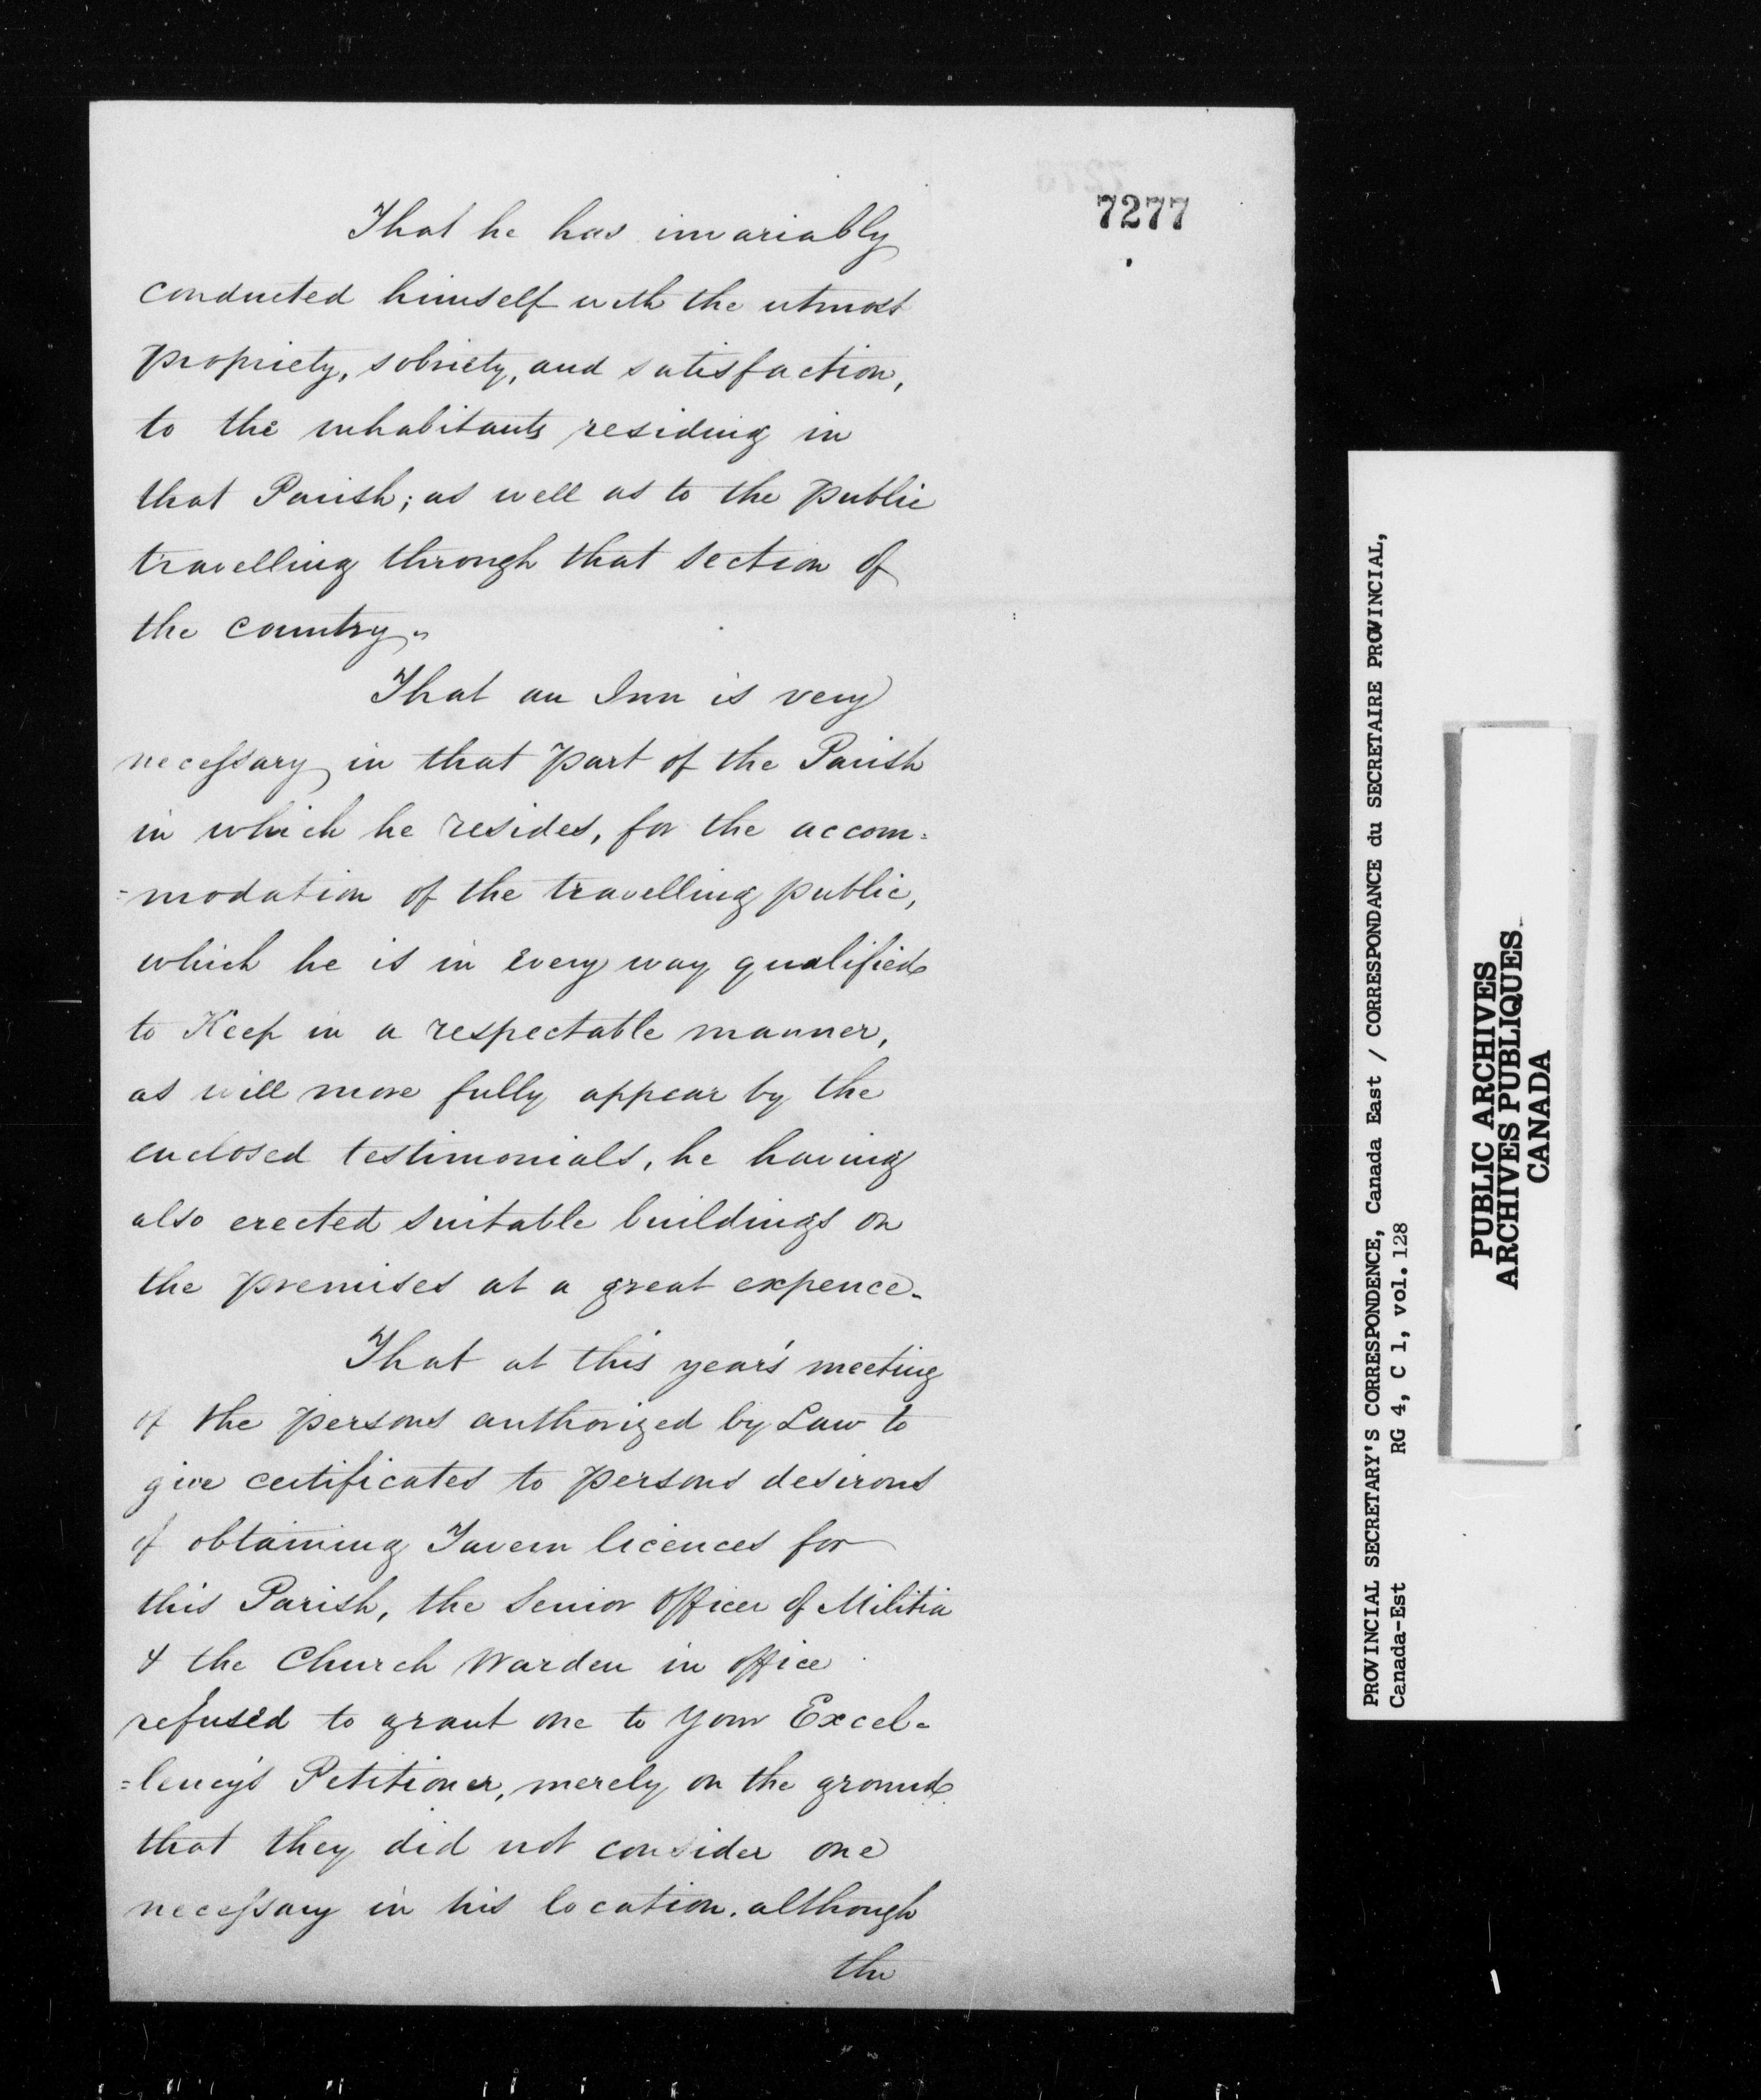 7277
That he has invariably
conducted himself with the utmost
propriety, sobriety, and satisfaction,
to the inhabitants residing in
that Parish; as well as to the public
travelling through that section of
the country.
That an Inn is very
necessary in that part of the Parish
in which he resides, for the accom=
=modation of the travelling public,
which he is in every way qualified
to Keep in a respectable manner,
as will more fully appear by the
enclosed testimonials, he having
also erected suitable buildings on
the premises at a great expence.
That at this year's meeting
of the persons authorized by Law to
give certificates to persons desirous
of obtaining Tavern licences for
this Parish, the Senior Officer of Militia
& the Church Warden in office
refused to grant one to Your Excel=
=lency's Petitioner, merely on the ground
that they did not consider one
necessary in his location. although
the
PROVINCIAL SECRETARY'S CORRESPONDENCE, Canada East / CORRESPONDANCE du SECRETAIRE PROVINCIAL,
Canada-Est RG 4, C 1, vol. 128
PUBLIC ARCHIVES
ARCHIVES PUBLIQUES
CANADA